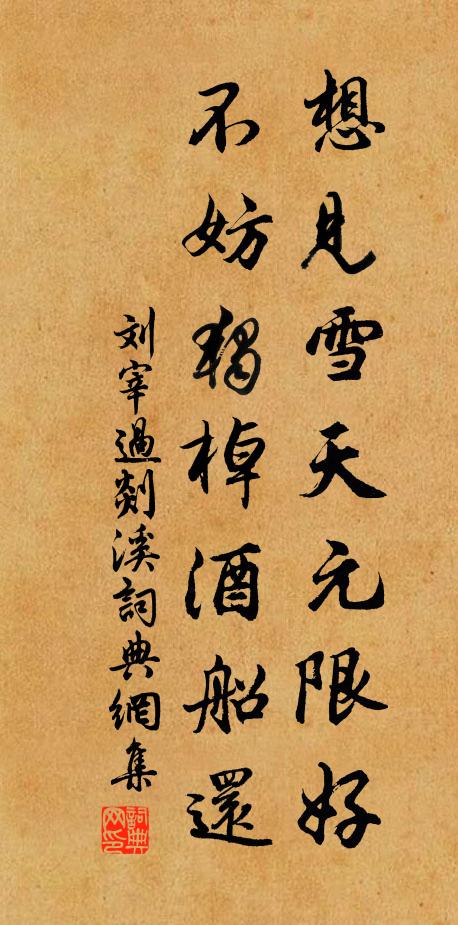 想見雪天元限好
不妨獨棹酒船還
刘宰過剡溪詞典網集
詞典網印